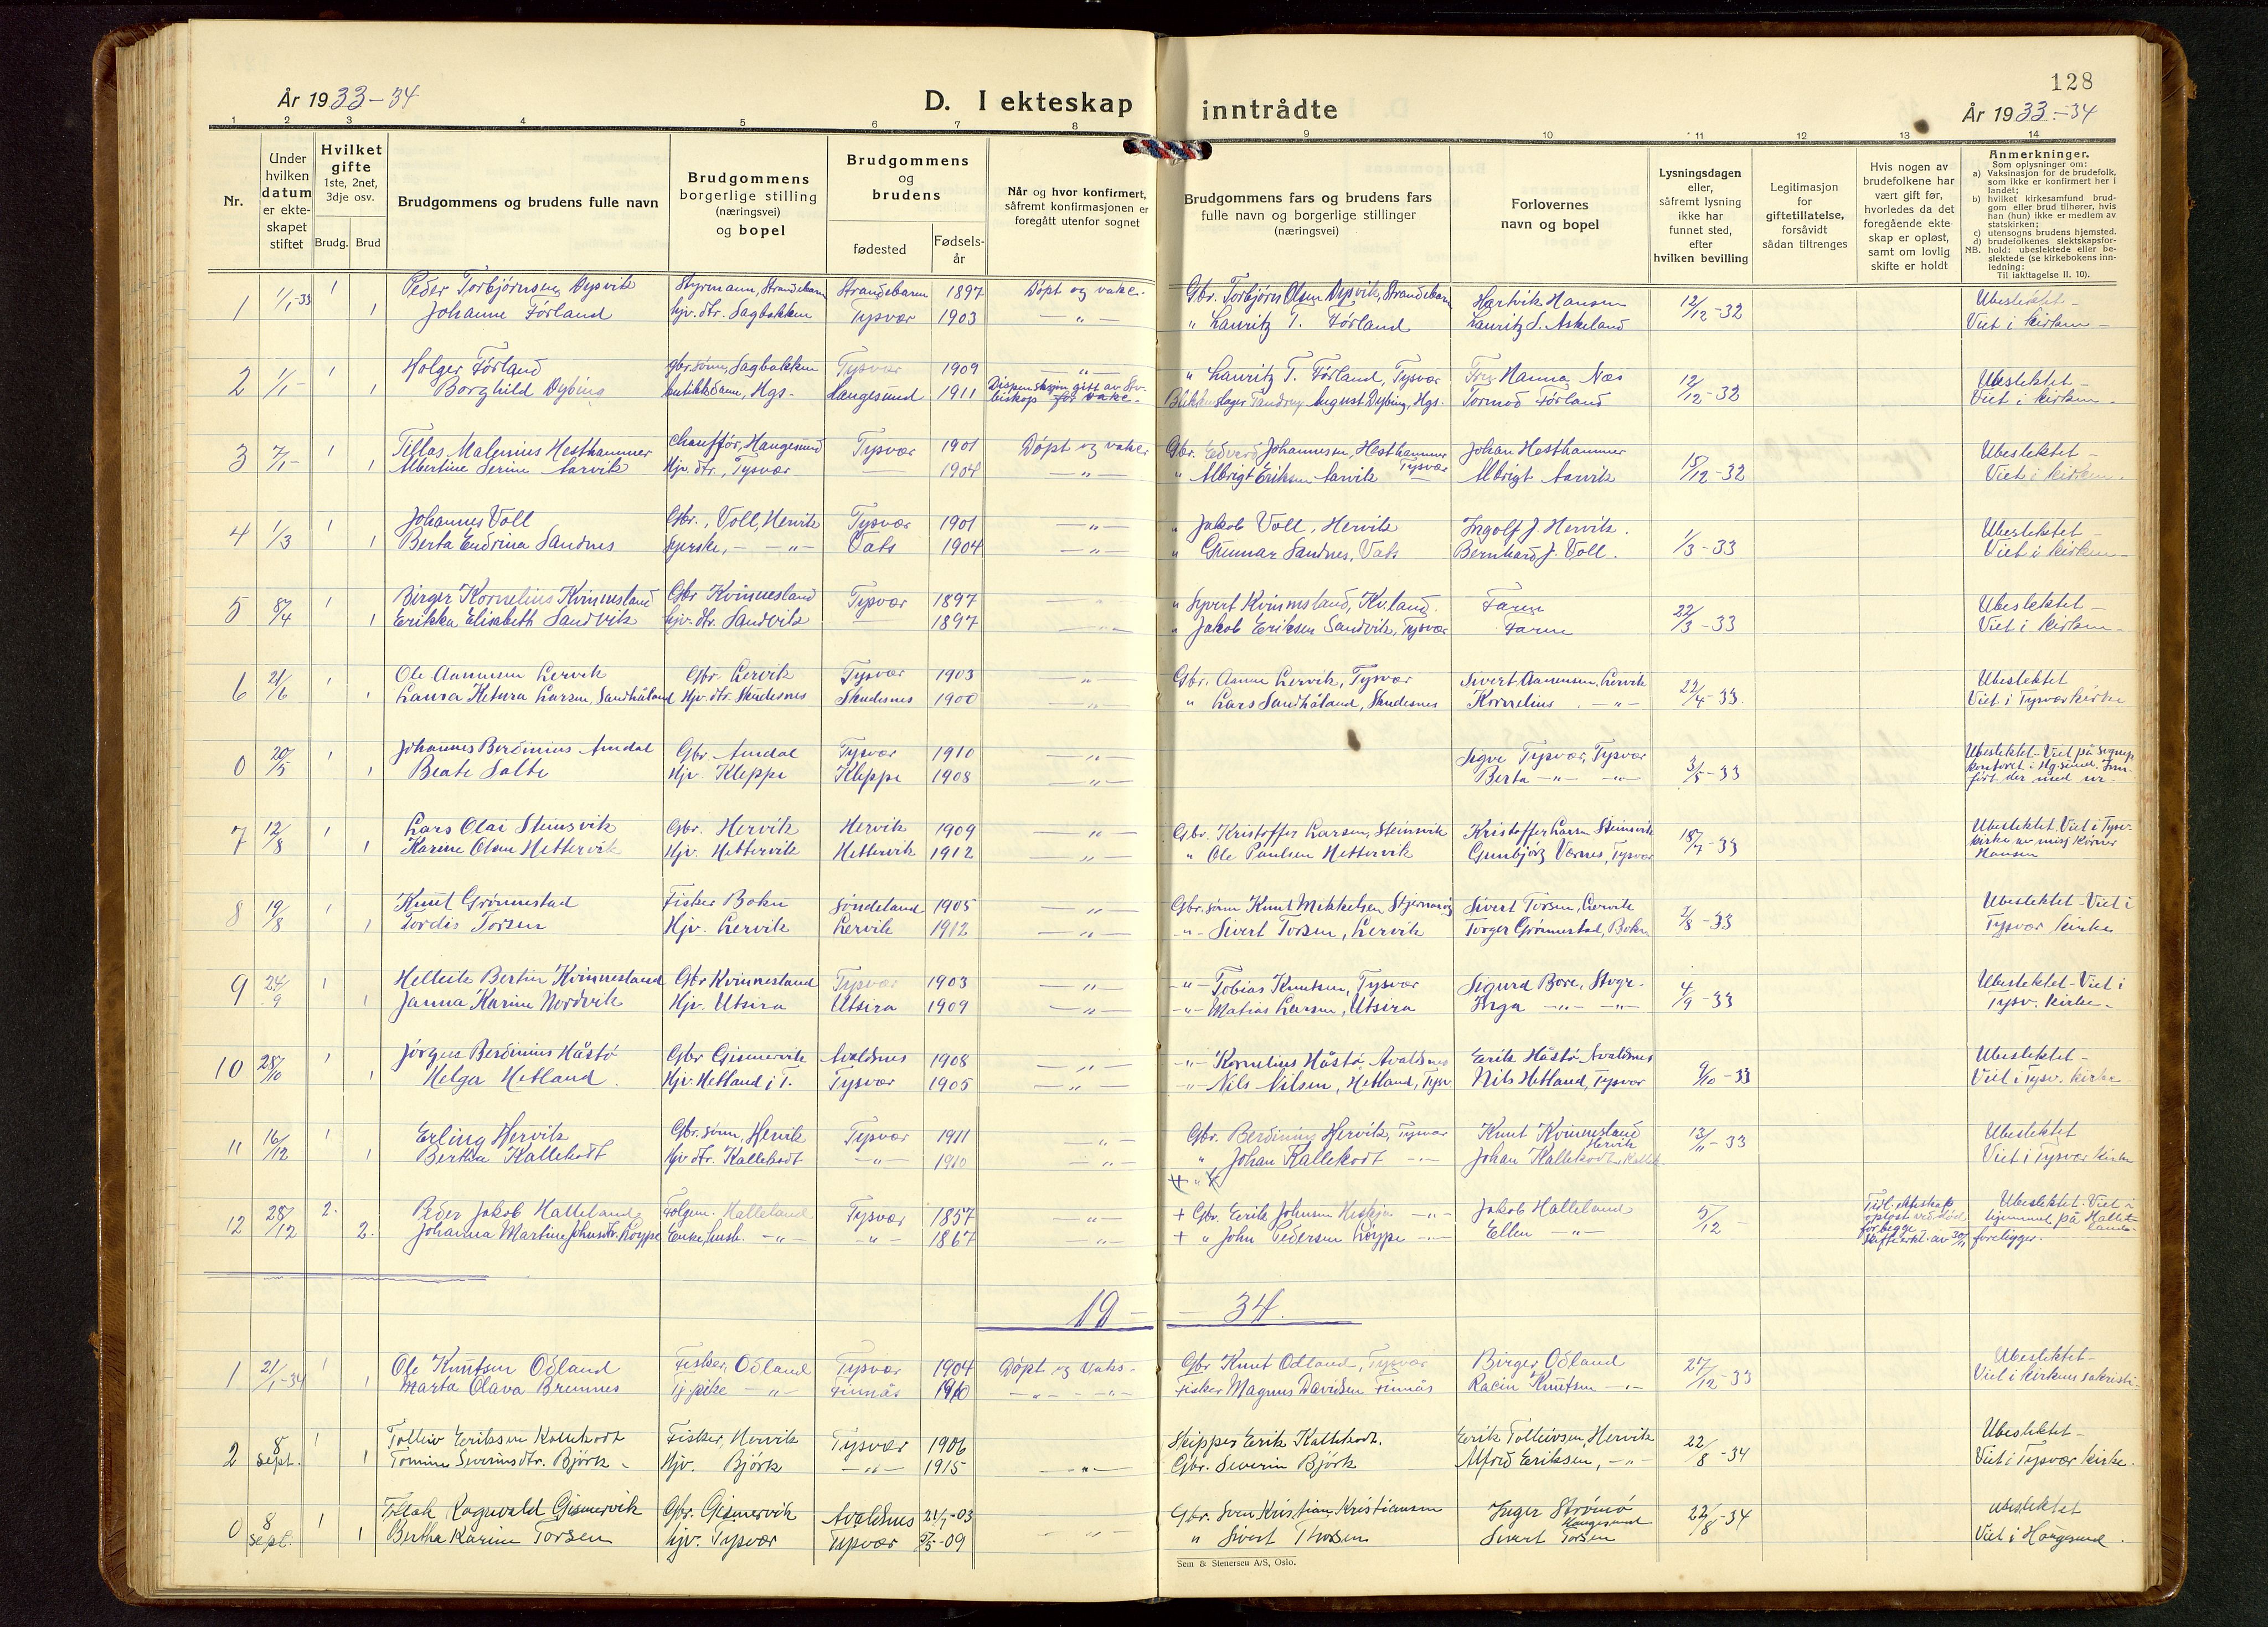 128
År 1933-34
D. I ekteskap inntrådte
År 1933-34
1 2 3 4 5 6 7 8 9 10 11 12 13 14
Nr.
Under hvilken datum er ekte-skapet stiftet
Hvilket gifte 1ste, 2net, 3dje osv.
Brudg. Brud
Brudgommens og brudens fulle navn
Brudgommens borgerlige stilling (næringsvei) og bopel
Brudgommens og brudens
fødested
Fødsels-år
Når og hvor konfirmert, såfremt konfirmasjonen er foregått utenfor sognet
Brudgommens fars og brudens fars fulle navn og borgerlige stillinger (næringsvei)
Forlovernes navn og bopel
Lysningsdagen eller, såfremt lysning ikke har funnet sted, efter hvilken bevilling
Legitimasjon for giftetillatelse, forsåvidt sådan tiltrenges
Hvis nogen av brudefolkene har vært gift før, hvorledes da det foregående ekte-skap er opløst, samt om lovlig skifte er holdt
Anmerkninger.
Som oplysninger om:
a) Vaksinasjon for de brudefolk, som ikke er konfirmert her i landet;
b) hvilket kirkesamfund brud-gom eller brud tilhører, hvis han (hun) ikke er medlem av statskirken;
c) utensogns brudens hjemsted.
d) brudefolkenes slektskapsfor-hold: ubeslektede eller be-slektede (se kirkebokens inn-ledning:
NB. Til iakttagelse II. 10).
1 1/1-33 1 Peder Torbjørnsen Dysvik Styrmann, Strandebarm Strandebarm 1897 Døpt og vaks. Gbr. Torbjørn Olsen Dysvik, Strandebarm Hartvik Hansen 12/12-32 Ubeslektet -
1 Johanne Førland hjv. dtr. Sagbakken Tysvær 1903 - " - " Lauritz T. Førland Lauritz S. Askeland Viet i kirken -
2 1/1- 1 Holger Førland Gbr. sønn, Sagbakken Tysvær 1909 - " - " Lauritz T. Førland, Tysvær Hanna Næs 12/12-32 Ubeslektet -
1 Borghild Dybing butikkdame, Hgs. Haugesund 1911 August Dybing, Hgs. Tormod Førland Viet i kirken -
3 7/1- 1 Hesthammer Chauffør, Haugesund Tysvær 1901 Døpt og vaks. Gbr. Edvard Johannesen, Hesthammer Tysvær Johan Hesthammer 15/12-32 Ubeslektet -
1 Albertine Serine Aarvik Hjv. dtr., Tysvær 1904 - " - " Albrigt Eriksen Aarvik Albrigt Aarvik Viet i kirken.
4 1/3 1 Johannes Voll Gbr., Voll, Hervik Tysvær 1901 - " - " Jakob Voll, Hervik Ingolf J. Hervik. 1/3-33 Ubeslektet -
1 Berta Endrina Sandnes Syerske, - " - Vats 1904 - " - " Gunnar Sandnes, Vats Bernhard J. Voll. Viet i kirken -
5 8/4 1 Birger Kornelius Kvinnesland Gbr Kvinnesland Tysvær 1897 " Syvert Kvinnesland, Kv.land. 22/3-33 Ubeslektet -
1 Erikka Elisabeth Sandvik hjv. dtr. Sandvik 1897 " Jakob Eriksen Sandvik, Tysvær Viet i kirken -
6 21/6 1 Ole Aamunsen Lervik Gbr. Lervik Tysvær 1903 Gbr. Lervik, Tysvær Sivert Aamunsen, Lervik 22/4-33. Ubeslektet
1 Laura Ketura Larsen, Sandhåland Hjv. dtr. Skudesnes Skudesnes 1900 - " - " Lars Sandhåland, Skudesnes Kornelius - " - Viet i Tysvær kirke
0 20/5 1 Johannes Berdinius Amdal Gbr Amdal Tysvær 1910 - " - Sigve Tysvær, Tysvær 3/5-33 Ubeslektet - Viet på
1 Beate Salte Hjv. Kleppe Kleppe 1908 - " - Berta - " - - " -
7 12/8 1 Lars Olai Steinsvik Gbr. Hervik Hervik 1909 - " - Gbr. Kristoffer Larsen, Steinsvik Kristoffer Larsen Steinsvik 18/7-33 Ubeslektet. Viet i Tysv. kirke av misj Körner Hansen
1 Karine Olsen Hettervik Hjv. Hettervik Hettervik 1912 - " - " Ole Paulsen Hettervik Gunbjørg Værnes, Tysvær
8 19/8 1 Knut Grønnestad Fisker Bokn Søndeland 1905 - " - Gbr. sønn Knut Mikkelsen Sivert Torsen, Lervik 1/8-33 Ubeslektet - Viet i
1 Tordis Torsen Hjv. Lervik Lervik 1912 - " - - " - Sivert Torsen, Lervik Torger Grønnestad, Bokn Tysvær kirke
9 24/9 1 Helleik Bertin Kvinnesland Gbr Kvinnesland Tysvær 1903 - " - - " - Tobias Knutsen, Tysvær Sigurd Bore, Stvgr. 4/9-33 Ubeslektet - Viet i
1 Janna Karine Nordvik Hjv. Utsira Utsira 1909 - " - - " - Matias Larsen, Utsira Inga - " - - " - Tysv. kirke -
10 28/10 1 Jørgen Berdinius Håstø Gbr Gismervik Avaldsnes 1908 - " - - " - Kornelius Håstø, Avaldsnes Erik Håstø Avaldsnes 9/10-33 Ubeslektet -
1 Helga Hetland. Hjv. Hetland i T. Tysvær 1905 - " - - " - Nils Nilsen, Hetland, Tysv Nils Hetland, Tysvær Viet i Tysv. kirke
11 16/12 1 Erling Hervik Gbr. sønn, Hervik Tysvær 1911 - " - Gbr. Berdinius Hervik, Tysvær Knut Kvinnesland Hervik 13/11-33 Ubeslektet
1 Bertha Kallekodt hjv dtr. Kallekodt - " - 1910 - " - " Johan Kallekodt - " - Johan Kallekodt, Viet i Tysvær kirke
12 28/12 2. Peder Jakob Halleland Halleland Tysvær 1857 - " - + Gbr. Erik Johnsen - " - Jakob Halleland 5/12 - Ubeslektet. Viet i hjemmet på Halleland.
2. Johanna Martine Johnsdtr. Løyppe Enke, - " - - " - 1867 - " - + " John Pedersen Løyppe - " - Ellen - " - foreligger.
19 - - 34.
1 21/1-34 1 Ole Knutsen Odland Fisker, Odland Tysvær 1904 Døpt og vaks- Gbr Knut Odland, Tysvær Birger Odland 27/12-33 Ubeslektet-
1 Marta Olava Bremnes Tj.pike - " - Finnås 1910 - " - - " - Fisker Magnus Davidsen Finnås Knutsen - " - Viet i kirkens sakristi-
2 8 sept. 1 Tolleiv Eriksen Kallekodt Fisker, Hervik Tysvær 1906 Skipper Erik Kallekodt. Erik Tolleivsen, Hervik 22/8-34 Ubeslektet-
1 Tomine Severinsdtr. Björk - Hjv. Björk - " - 1915 - " - Gbr. Severin Björk Alfred Eriksen, - " - Viet i Tysvær kirke.
0 8 sept. 1 Tollak Ragnvald Gismervik Gbr. Gismervik Avaldsnes 21/7-03 Gbr. Sven Kristian Kristiansen Inger Strömö Haugesund 22/8-34 ubeslektet
1 Bertha Karine Torsen hjv. Tysvær Tysvær -09 " Sivert Thorsen Sivert Torsen Viet i Haugesund.
Sem & Stenersen A/S, Oslo.